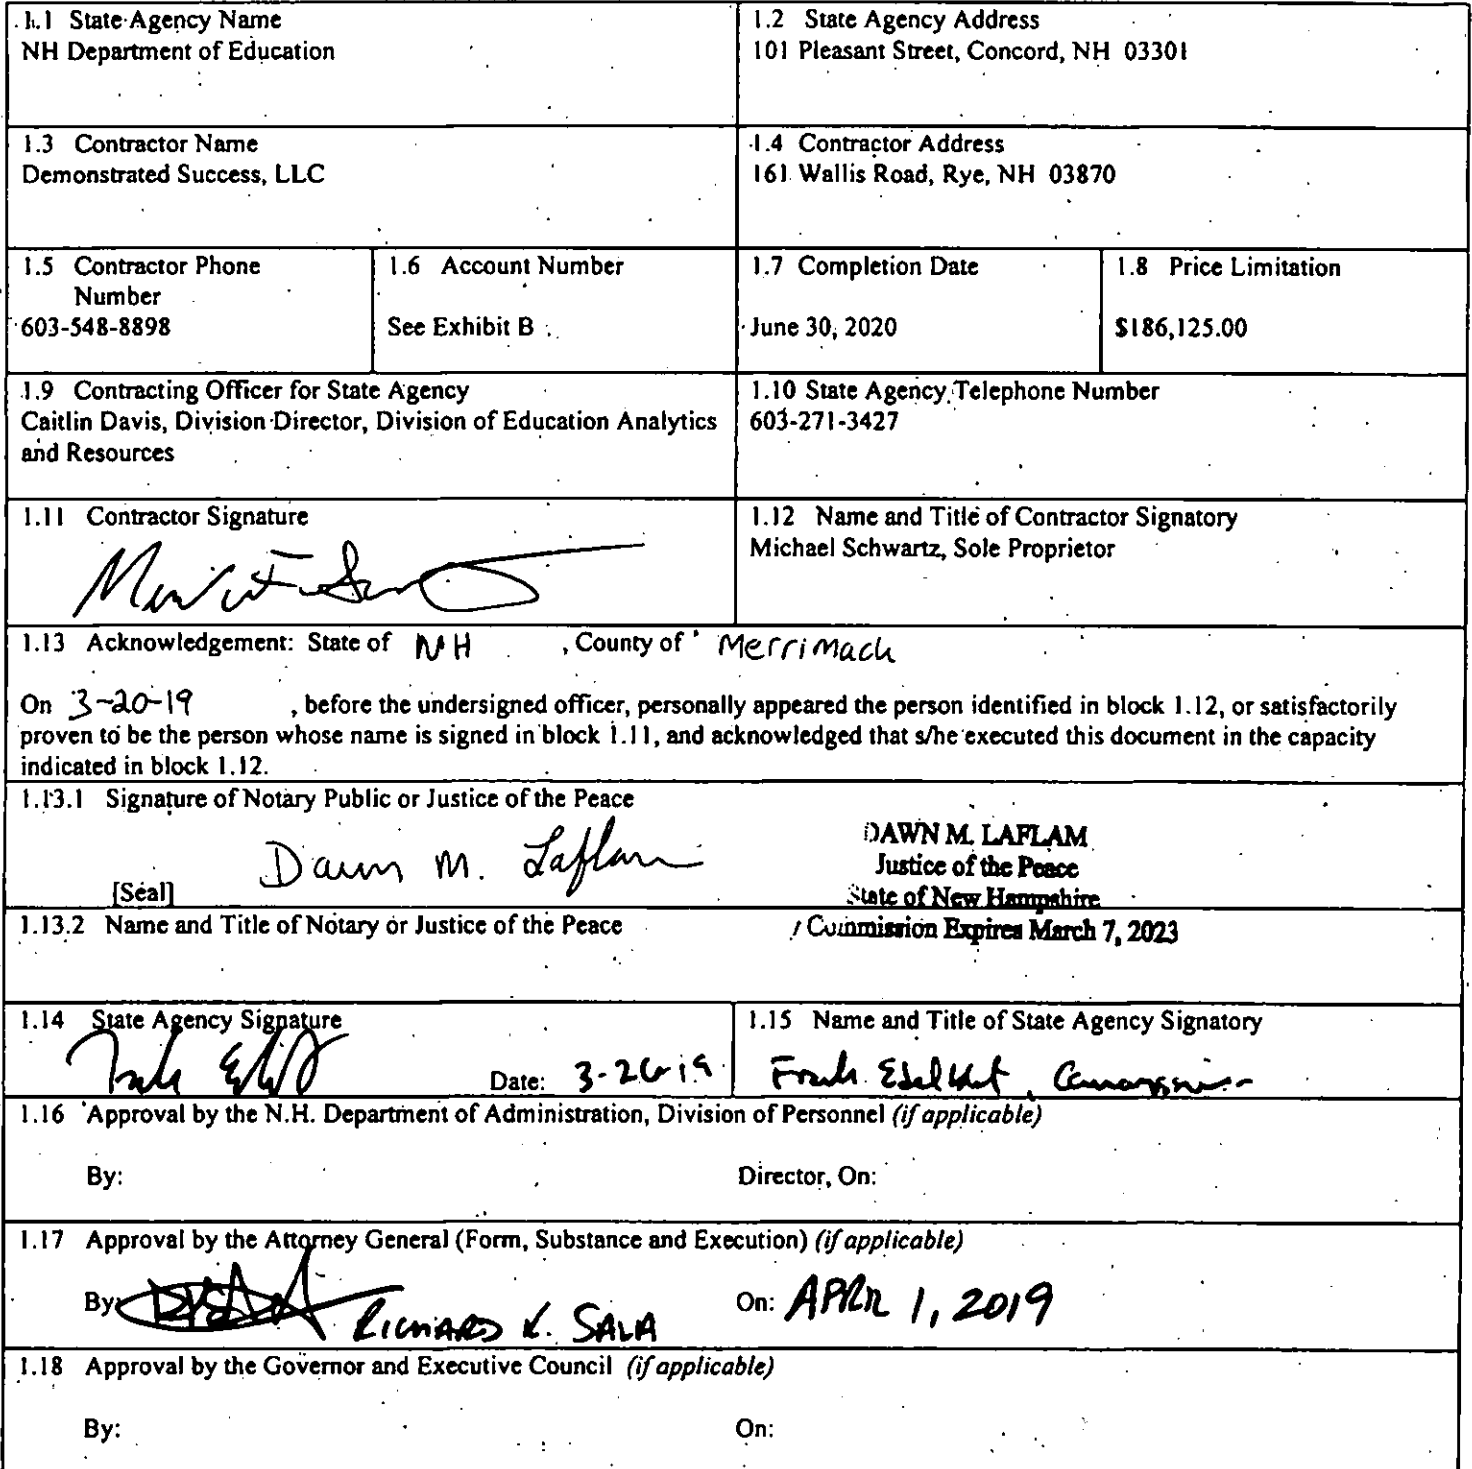 1.1 State Agency Name
NH Department of Education
1.2 State Agency Address
101 Pleasant Street, Concord, NH 03301
1.3 Contractor Name
Demonstrated Success, LLC
1.4 Contractor Address
161 Wallis Road, Rye, NH 03870
1.5 Contractor Phone
Number
603-548-8898
1.6 Account Number
See Exhibit B
1.7 Completion Date
June 30, 2020
1.8 Price Limitation
$186,125.00
1.9 Contracting Officer for State Agency
Caitlin Davis, Division Director, Division of Education Analytics
and Resources
1.10 State Agency Telephone Number
603-271-3427
1.11 Contractor Signature
1.12 Name and Title of Contractor Signatory
Michael Schwartz, Sole Proprietor
1.13 Acknowledgement: State of NH , County of Merrimack
On 3-20-19 , before the undersigned officer, personally appeared the person identified in block 1.12, or satisfactorily
proven to be the person whose name is signed in block 1.11, and acknowledged that s/he executed this document in the capacity
indicated in block 1.12.
1.13.1 Signature of Notary Public or Justice of the Peace
Dawn M. Laflam
[Seal]
DAWN M. LAFLAM
Justice of the Peace
State of New Hampshire
1.13.2 Name and Title of Notary or Justice of the Peace
Commission Expires March 7, 2023
1.14 State Agency Signature
Date: 3-26-19
1.15 Name and Title of State Agency Signatory
Frank Edelblut, Commissioner
1.16 Approval by the N.H. Department of Administration, Division of Personnel (if applicable)
By:
Director, On:
1.17 Approval by the Attorney General (Form, Substance and Execution) (if applicable)
By: RICHARD K. SALA
On: APRIL 1, 2019
1.18 Approval by the Governor and Executive Council (if applicable)
By:
On: